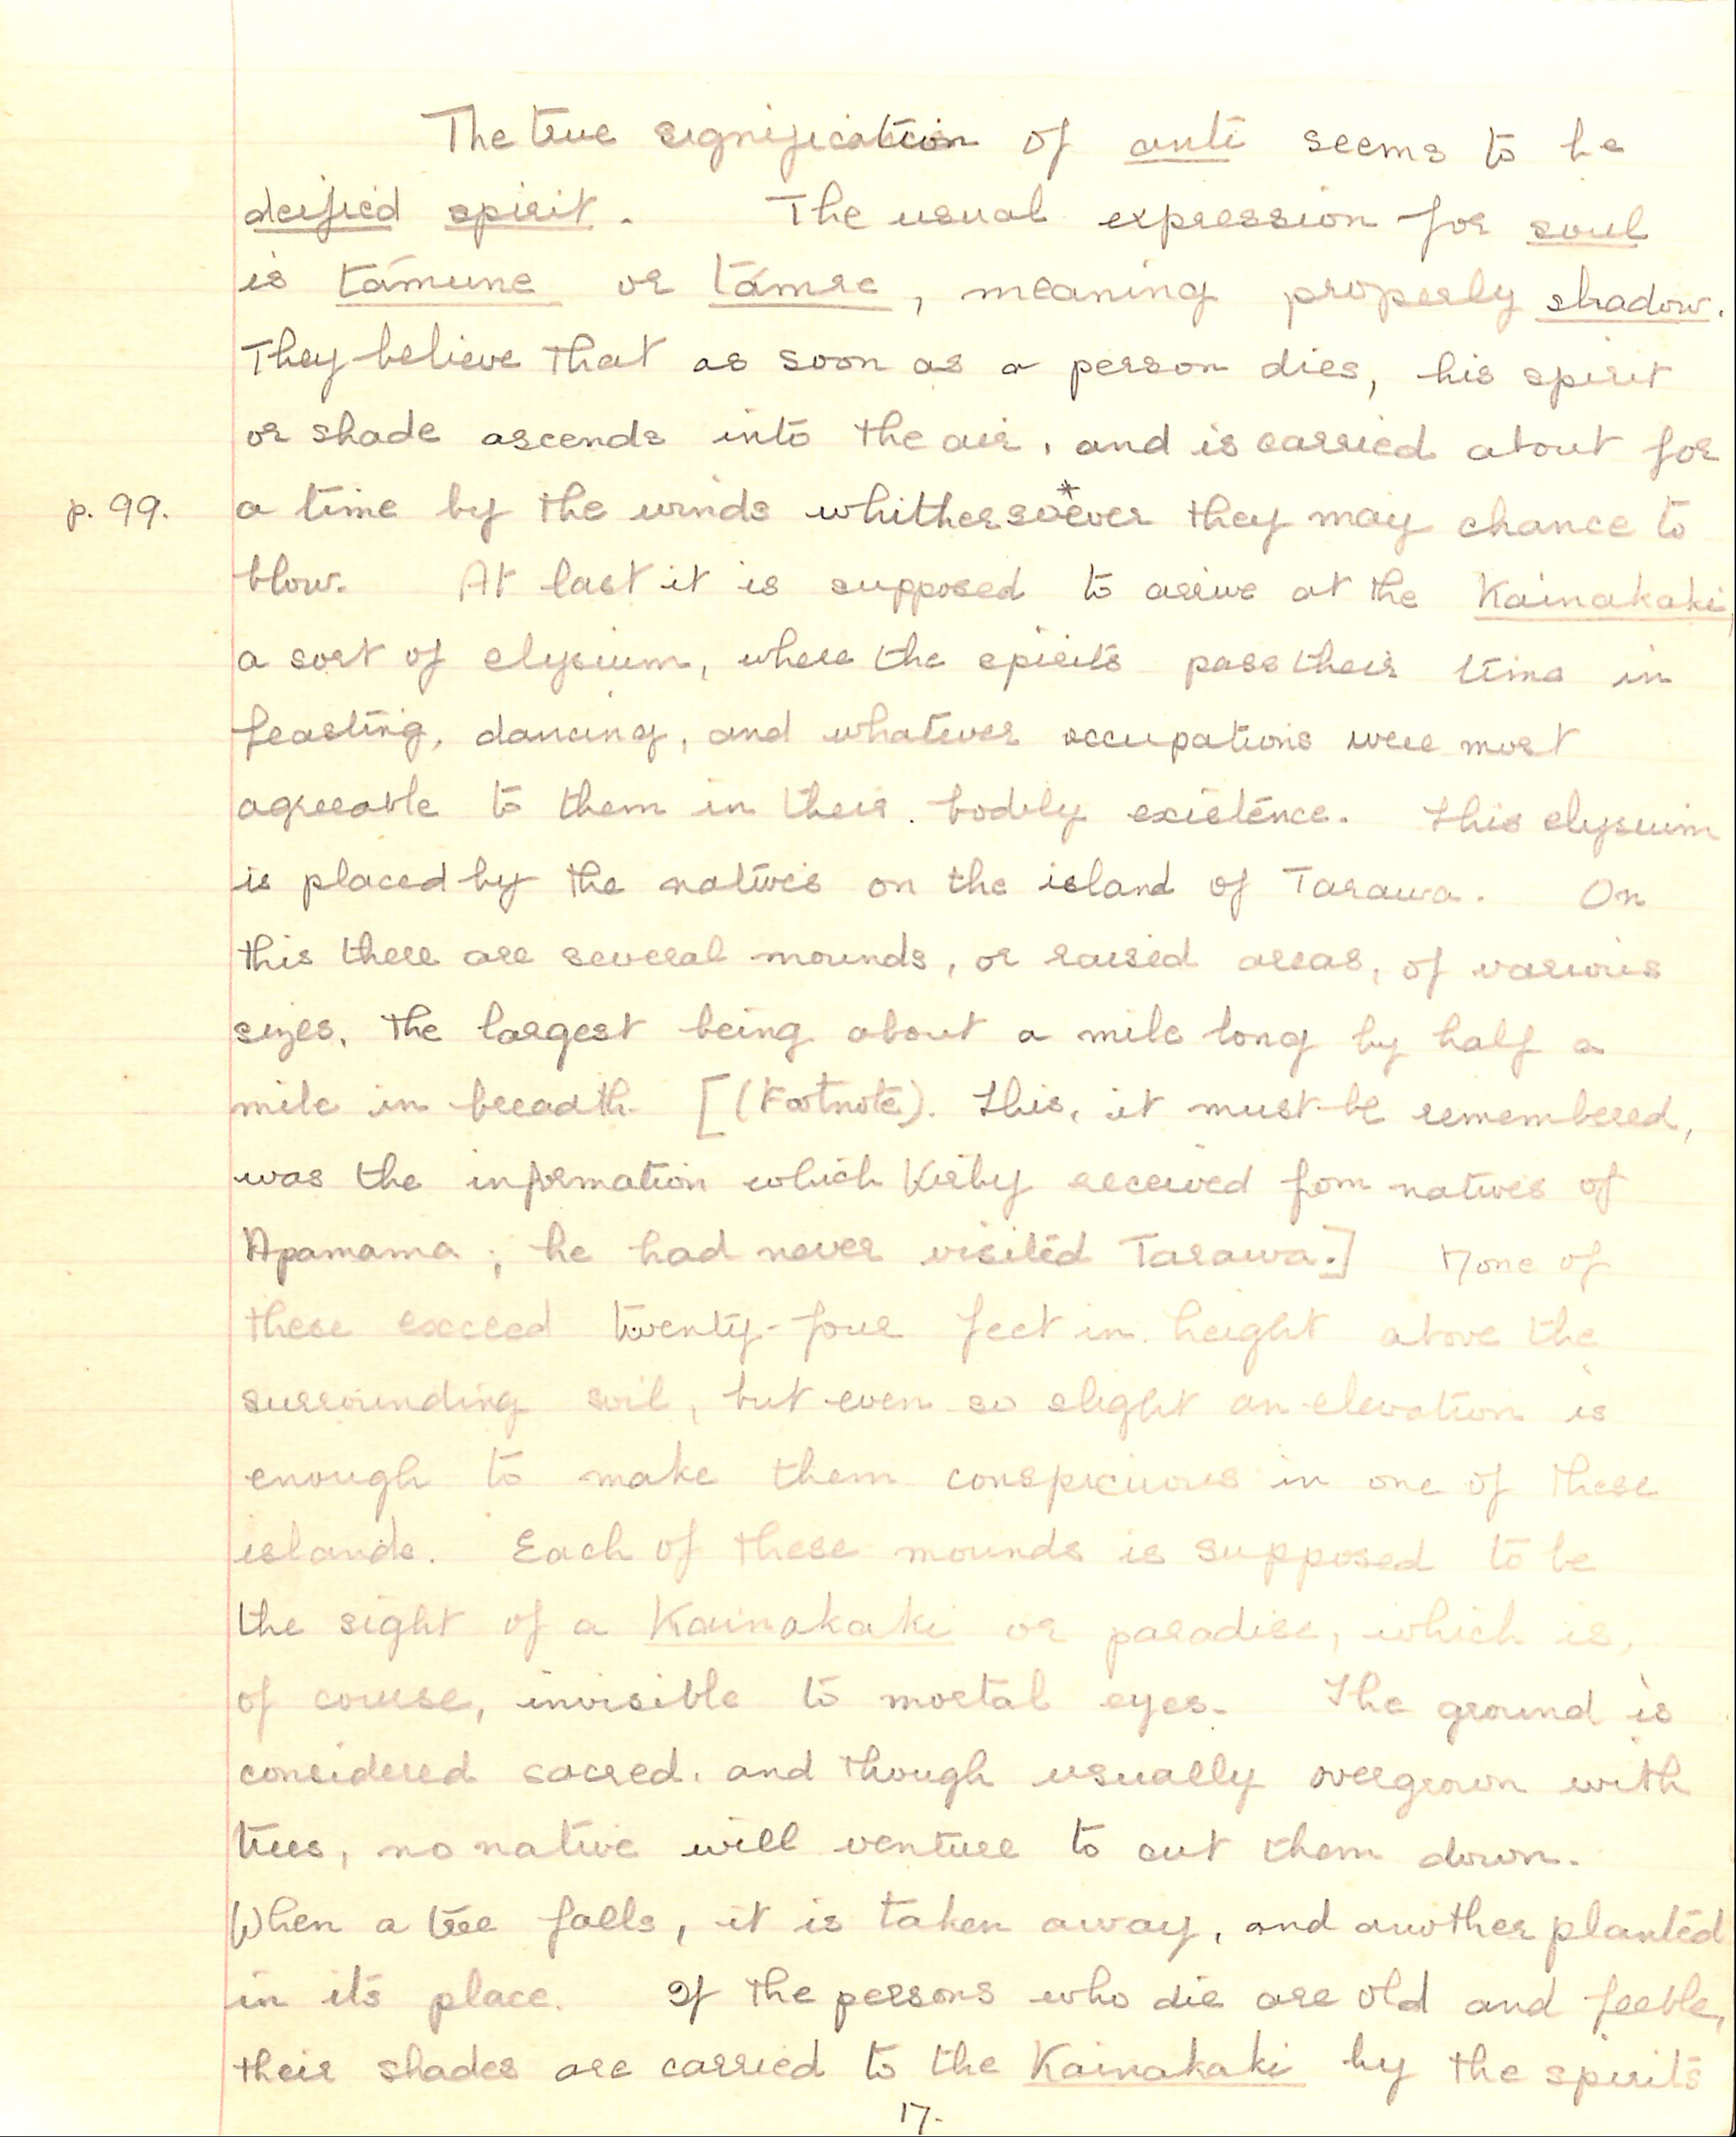 The true signification of anti seems to be
deified spirit. The usual expression for soul
is támune or támre, meaning properly shadow.
They believe that as soon as a person dies, his spirit
or shade ascends into the air, and is carried about for
p. 99. a time by the winds whithersoever* they may chance to
blow. At last it is supposed to arrive at the Kainakaki,
a sort of elysium, where the spirits pass their time in
feasting, dancing, and whatever occupations were most
agreeable to them in their bodily existence. This elysium
is placed by the natives on the island of Tarawa. On
this there are several mounds, or raised areas, of various
sizes, the largest being about a mile long by half a
mile in breadth. [(Footnote). This, it must be remembered,
was the information which Kirby received fom natives of
Apamama; he had never visited Tarawa.] None of
these exceed twenty-four feet in height above the
surrounding soil, but even so slight an elevation is
enough to make them conspicuous in one of these
islands. Each of these mounds is supposed to be
the sight of a Kainakaki or paradise, which is,
of course, invisible to mortal eyes. The ground is
considered sacred, and though usually overgrown with
trees, no native will venture to cut them down.
When a tree falls, it is taken away, and another planted
in its place. If the persons who die are old and feeble,
their shades are carried to the Kainakaki by the spirits
17.